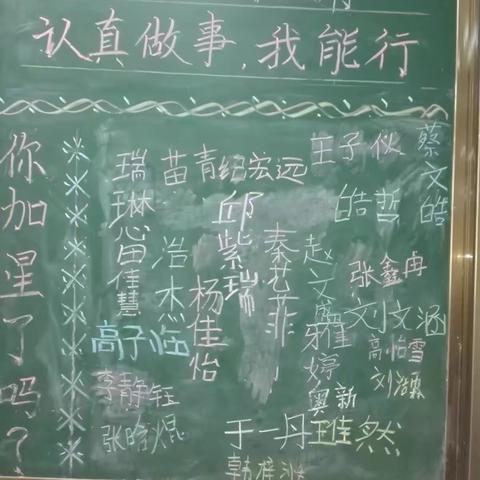 认真做事,我能行
你加星了吗?
瑞琳
苗青
纪宏远
王子仪
蔡文皓
皓哲
邱紫瑞
佳慧
浩杰
杨佳怡
秦艺菲
赵文
张鑫冉
刘文涵
高子临
雅婷
高怡雪
李静钰
奥新
张晗焜
于一丹
王佳然
韩梓